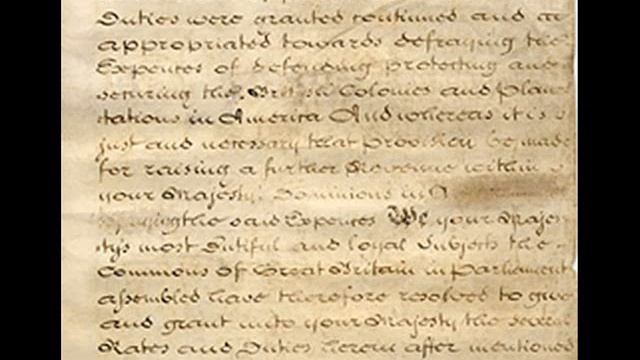 Duties were granted continued and
appropriated towards defraying the
Expences of defending protecting and
securing the British Colonies and Plan
tations in America And whereas it is
just and necessary that Provision be made
for raising a further Revenue within
your Majestys Dominions in A
defraying the said Expences We your Majes
tys most Dutiful and loyal Subjects the
Commons of Great Britain in Parliament
assembled have therefore resolved to give
and grant unto your Majesty the several
Rates and Duties herein after mentioned